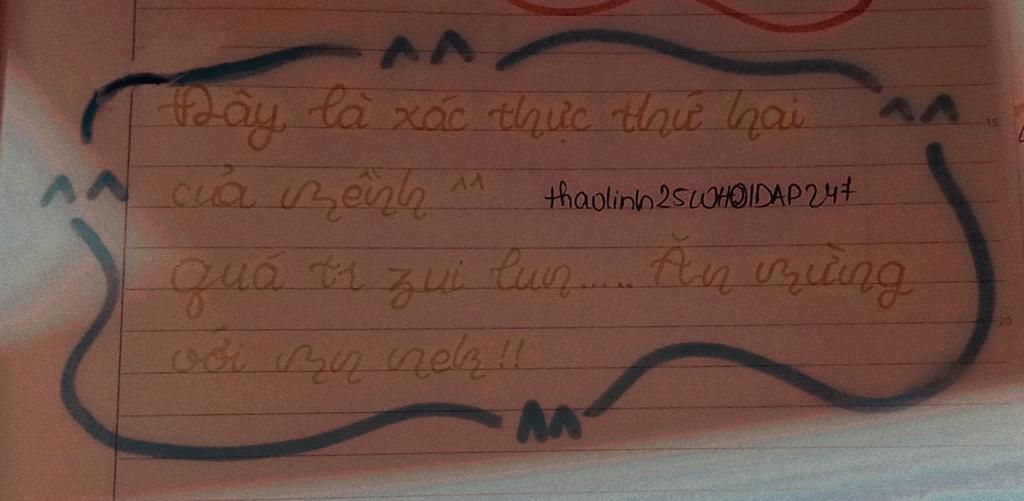 Đây là xác thực thứ hai
của mềnh ^^ thaolinh25WHOIDAP247
quá tr zui lun..... Ăn mừng
với mn nek!!
15
20